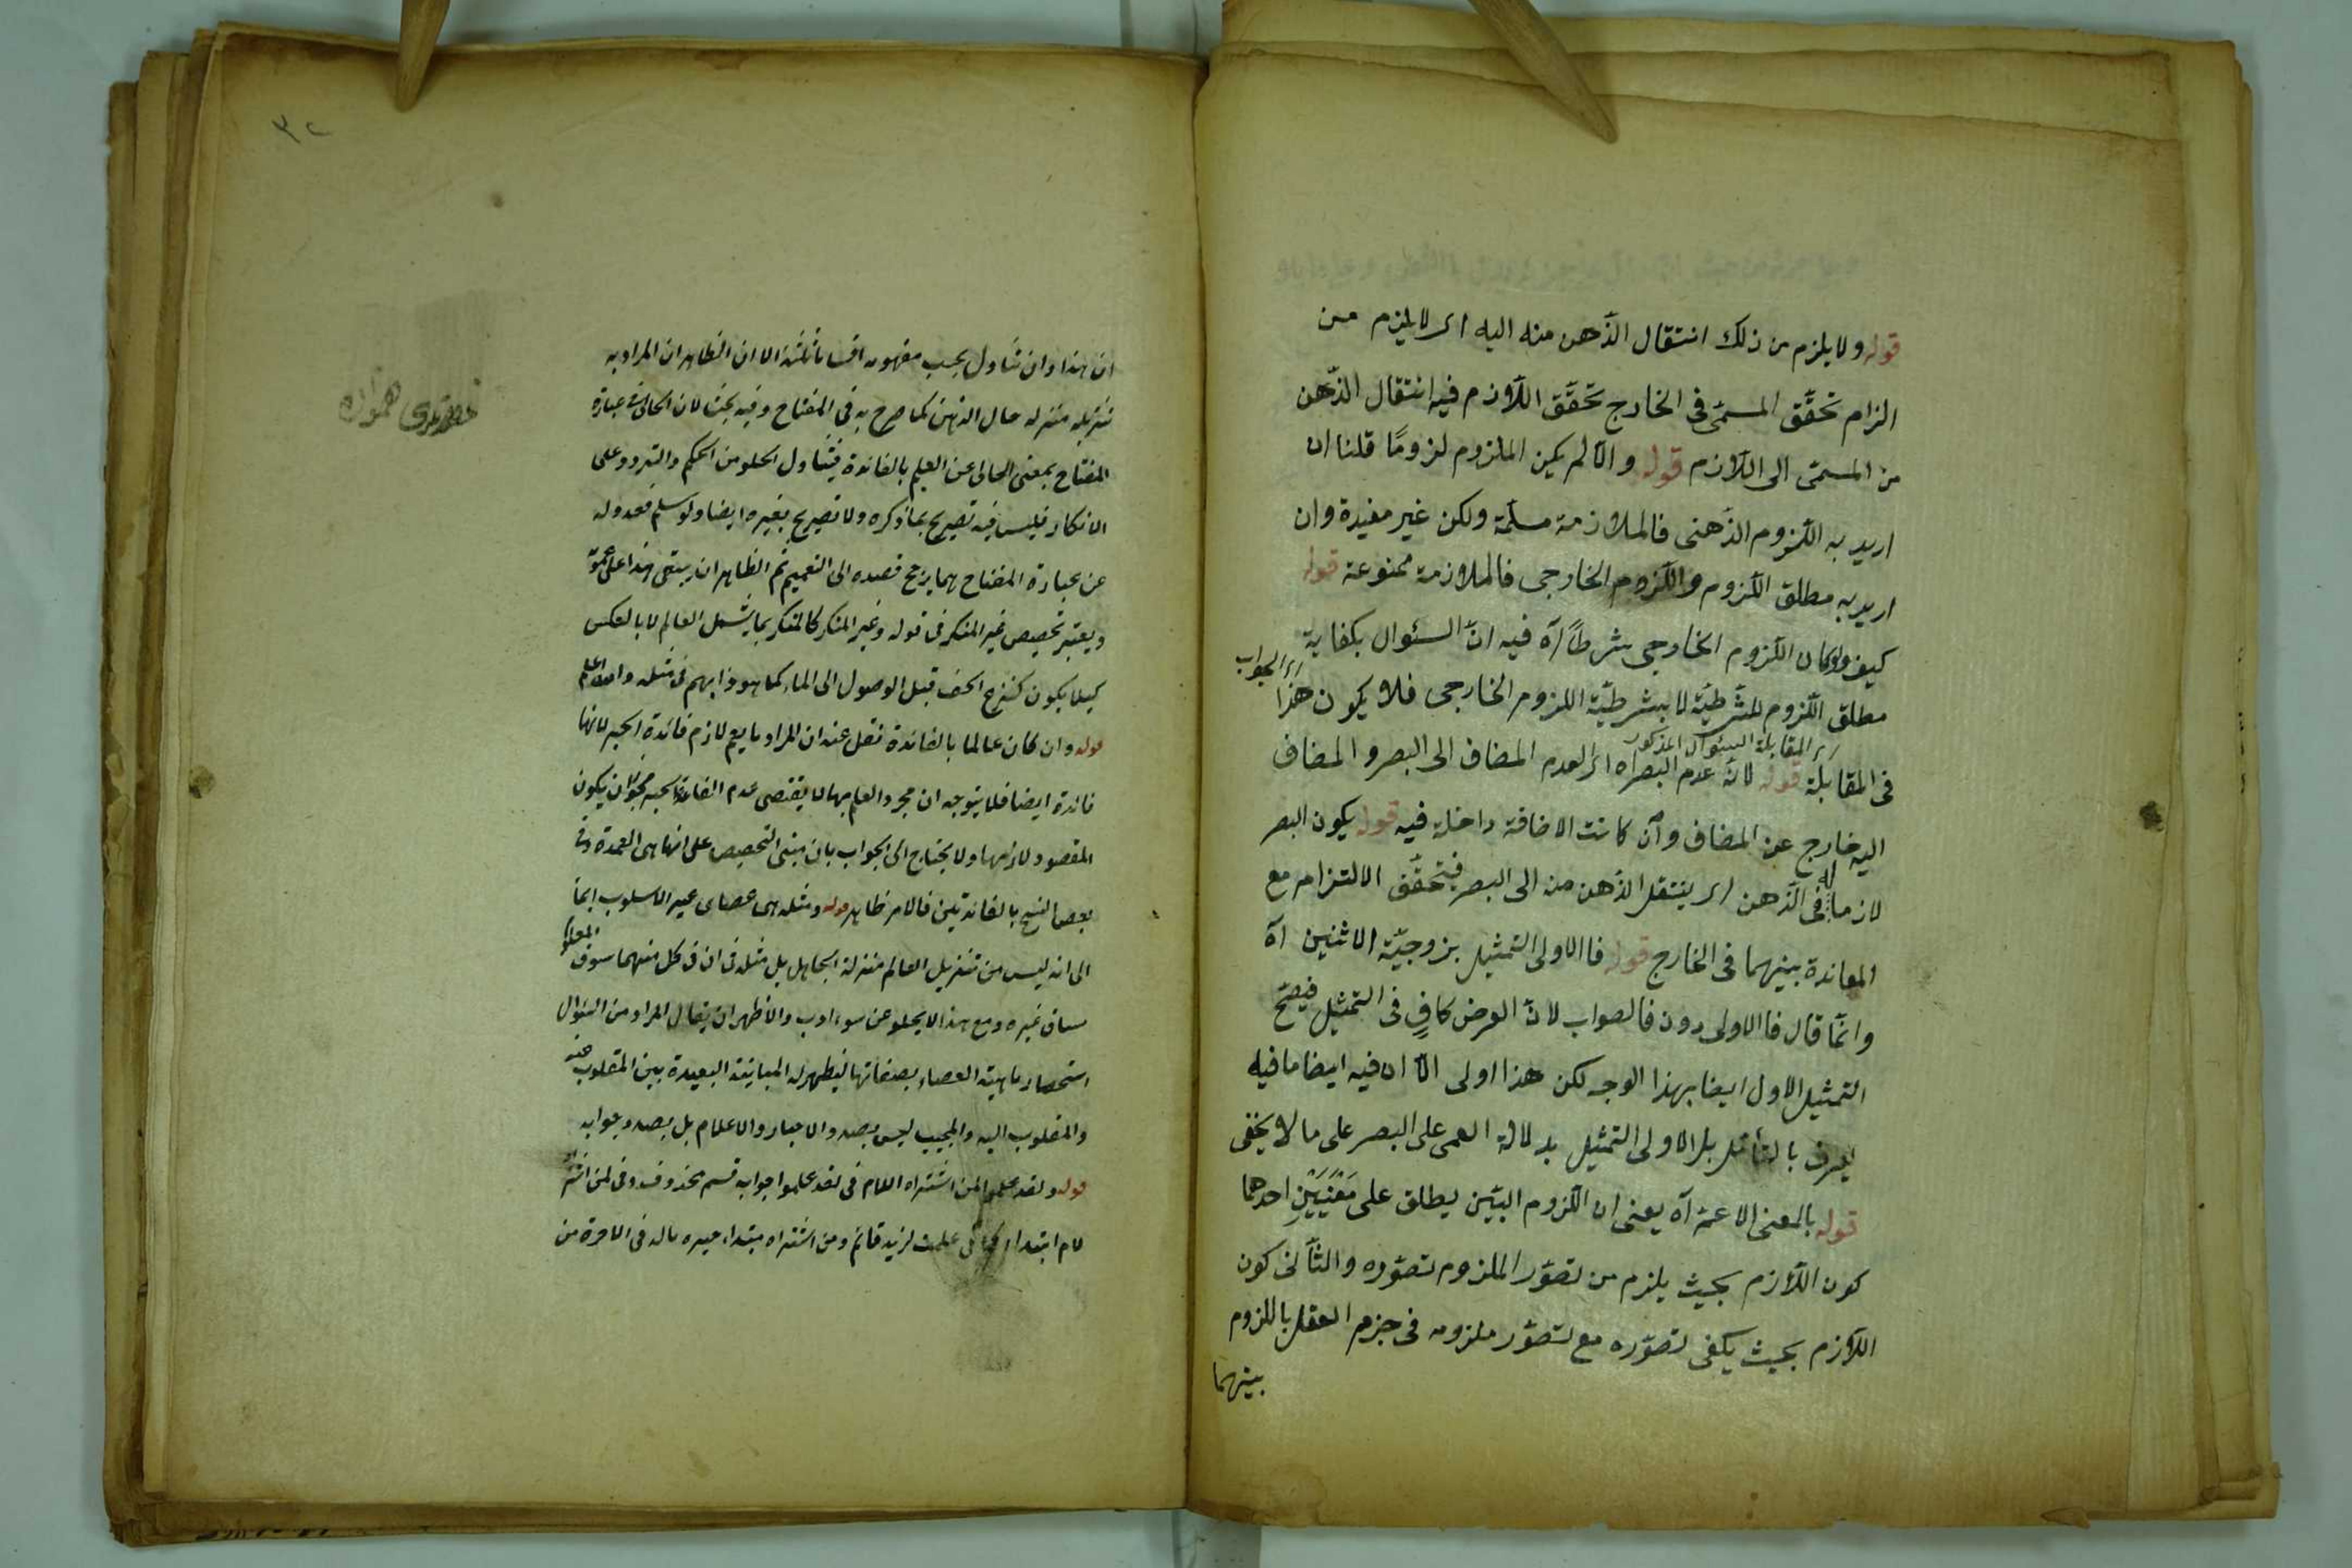 قوله ولا يلزم من ذلك انتقال الذّهن منه اليه اى لا يلزم من
الزام تحقّق المسمّى فى الخارج تحقّق اللّازم فيه انتقال الذّهن
من المسمّى الى اللّازم قوله والّا لم يكن الملزوم لزومًا قلنا ان
اريد به اللّزوم الذّهنى فالملازمة مسلّمة ولكن غير مفيدة وان
اريد به مطلق اللّزوم واللّزوم الخارجى فالملازمة ممنوعة قوله
كيف ولو كان اللّزوم الخارجى شرطًا آه فيه انّ السئوال بكفاية
مطلق اللّزوم للشّرطيّة لا بشرطيّة اللزوم الخارجى فلا يكون هذا
اى الجواب
فى المقابلة قوله لانّه عدم البصر آه اى العدم المضاف الى البصر والمضاف
اى المقابلة السئوال المذكور
اليه خارج عن المضاف وان كانت الاضافة داخلة فيه قوله يكون البصر
لازما له فى الذّهن اى ينتقل الذهن منه الى البصر فتحقّق الالتزام مع
المعاندة بينهما فى الخارج قوله فالاولى التمثيل بزوجيّة الاثنين آه
وانّما قال فالاولى دون فالصواب لانّ الفرض كافٍ فى التمثيل فيصّح
التمثيل الاول ايضا بهذا الوجه لكن هذا اولى الّا ان فيه ايضا ما فيه
يعرف بالتأمّل بل الاولى التمثيل بدلالة العمى على البصر على ما لا يخفى
قوله بالمعنى الاعمّ آه يعنى ان اللّزوم البيّن يطلق على مَعْنَيَيْنِ احدهما
كون اللّازم بحيث يلزم من تصوّر الملزوم تصوّره والثّانى كون
اللّازم بحيث يكفى تصوّره مع تصوّر ملزومه فى جزم العقل باللزوم
بينهما
٣٢
ان هذا وان تناول بحسب مفهومه اقساما ثلثة الا ان الظاهر ان المراد به
تنزيله منزلة خال الذهن كما صرح به فى المفتاح وفيه بحث لان الخالى فى عبارة
المفتاح بمعنى الخالى عن العلم بالفائدة فيتناول الخلو من الحكم والتردد وعلى
الانكار فليس فيه تصريح بما ذكره ولا تصريح بغيره ايضا ولو سلم فعدوله
عن عبارة المفتاح بهما يرجح قصده الى التعميم ثم الظاهر ان يبقى هذا على عمومه
ويعتبر تخصيص غير المنكر فى قوله وغير المنكر كالمنكر بما يشمل العالم لا بالعكس
كيلا يكون كنزع الخف قبل الوصول الى الماء كما هو دأبهم فى مثله والله اعلم
قوله وان كان عالما بالفائدة نقل عنه ان المراد ما يعم لازم فائدة الخبر لانها
فائدة ايضا فلا يتوجه ان مجرد العلم بها لا يقتضى عدم القاء الخبر لجواز ان يكون
المقصود لازمها ولا يحتاج الى الجواب بان مبنى التخصيص على انها هى العمدة وفى
بعض النسخ بالفائدتين فالامر ظاهر قوله ومثله هى عصاى غير الاسلوب ايماً
الى انه ليس من تنزيل العالم منزلة الجاهل بل مثله فى ان فى كل منهما سوق المعلوم
مساق غيره ومع هذا لا يخلو عن سوء ادب والاظهر ان يقال المراد من السئوال
استحضار ماهية العصاء بصفاتها ليظهر له المباينة البعيدة بين المقلوب عنه
والمقلوب اليه والمجيب ليس بصدد الاخبار والاعلام بل بصدد جوابه
قوله ولقد علموا لمن اشتراه اللام فى لقد علموا جوابه قسم محذوف وفى لمن اشتراه
لام ابتداء كما فى علمت لزيد قائم ومن اشتراه مبتداء خبره ماله فى الاخرة من